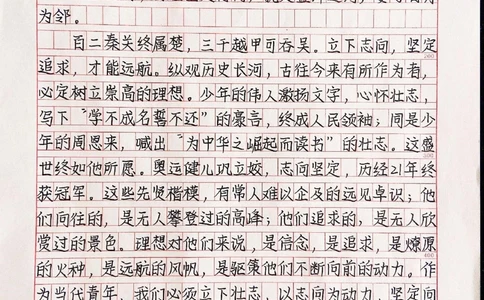 为邻。
百二秦关终属楚，三千越甲可吞吴。立下志向，坚定
200
追求，才能远航。纵观历史长河，古往今来有所作为者，
必定树立崇高的理想。少年的伟人激扬文字，心怀壮志，
写下“学不成名誓不还”的豪言，终成人民领袖；同是少
年的周恩来，喊出“为中华之崛起而读书”的壮志。这盛
世终如他所愿。奥运健儿巩立姣，志向坚定，历经21年终
获冠军。这些先贤楷模，有常人难以企及的远见卓识；他
们向往的，是无人攀登过的高峰；他们追求的，是无人欣
赏过的景色。理想对他们来说，是信念，是追求，是燎原
400
的火种，是远航的风帆，是驱策他们不断向前的动力。作
为当代青年，我们必须立下壮志，以志向为动力，坚定向